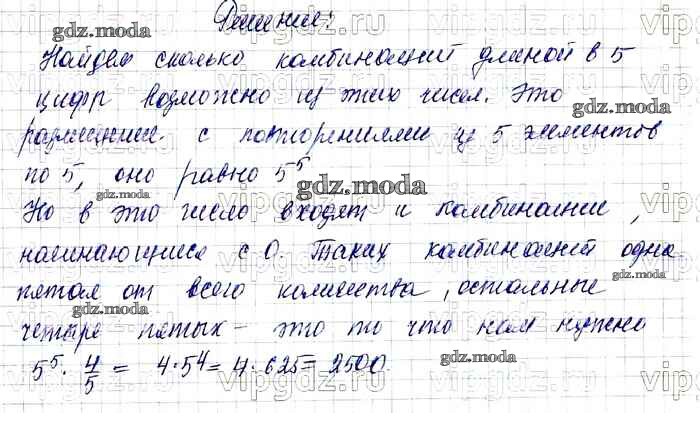 Решение:
Найдем сколько комбинаций длиной в 5
цифр возможно из этих чисел. Это
размещение с повторениями из 5 элементов
по 5, оно равно 5⁵
Но в это число входят и комбинации,
начинающиеся с 0. Таких комбинаций одна
пятая от всего количества, остальные
четыре пятых - это то что нам нужно
5⁵ · 4/5 = 4·5⁴ = 4·625 = 2500.
gdz.moda
gdz.moda
gdz.moda
gdz.moda
gdz.moda
gdz.moda
gdz.moda
vipgdz.ru
vipgdz.ru
vipgdz.ru